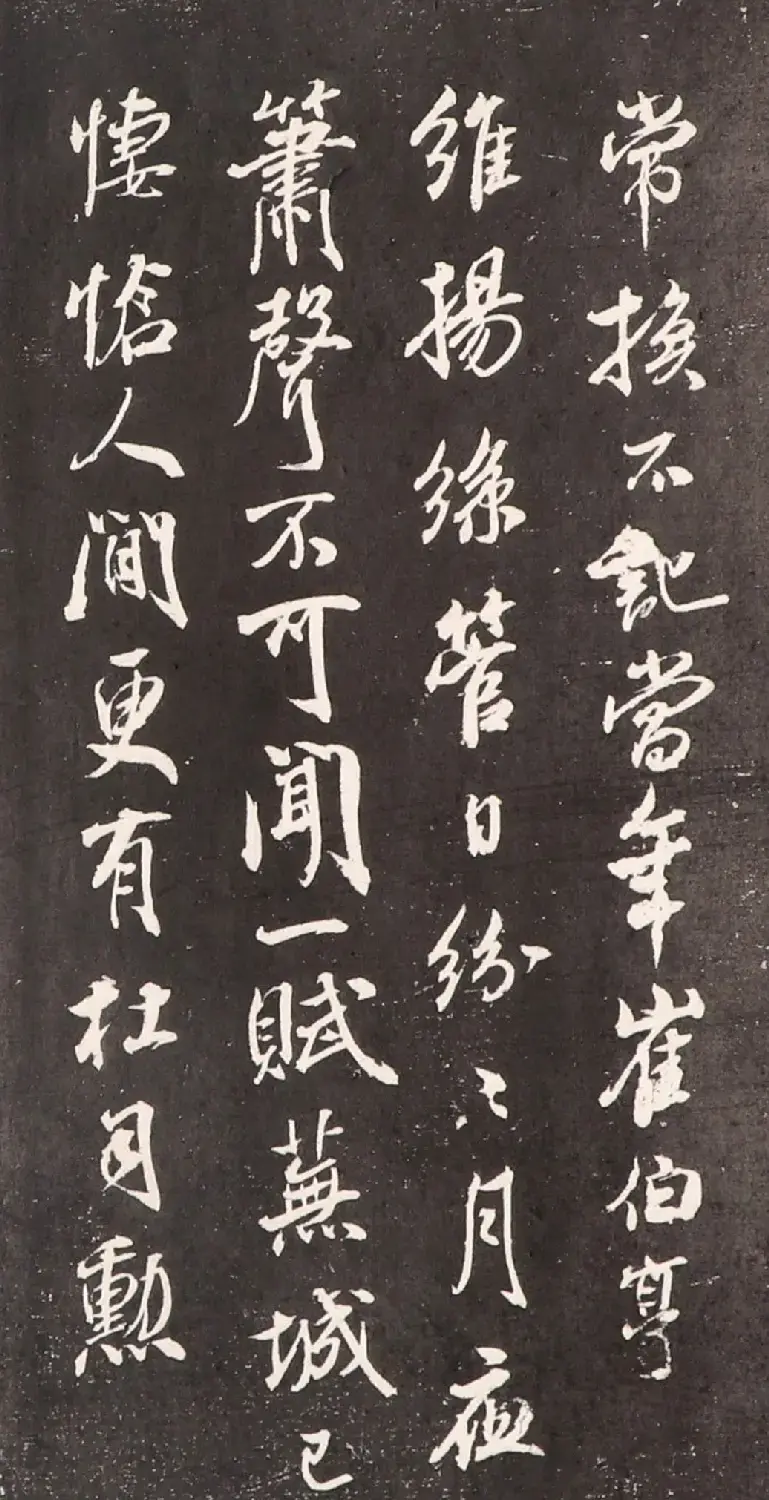 常挨不記當年崔伯亭
維揚絲管日紛〻月夜
簫聲不可聞一賦蕪城已
悽愴人間更有杜司勳